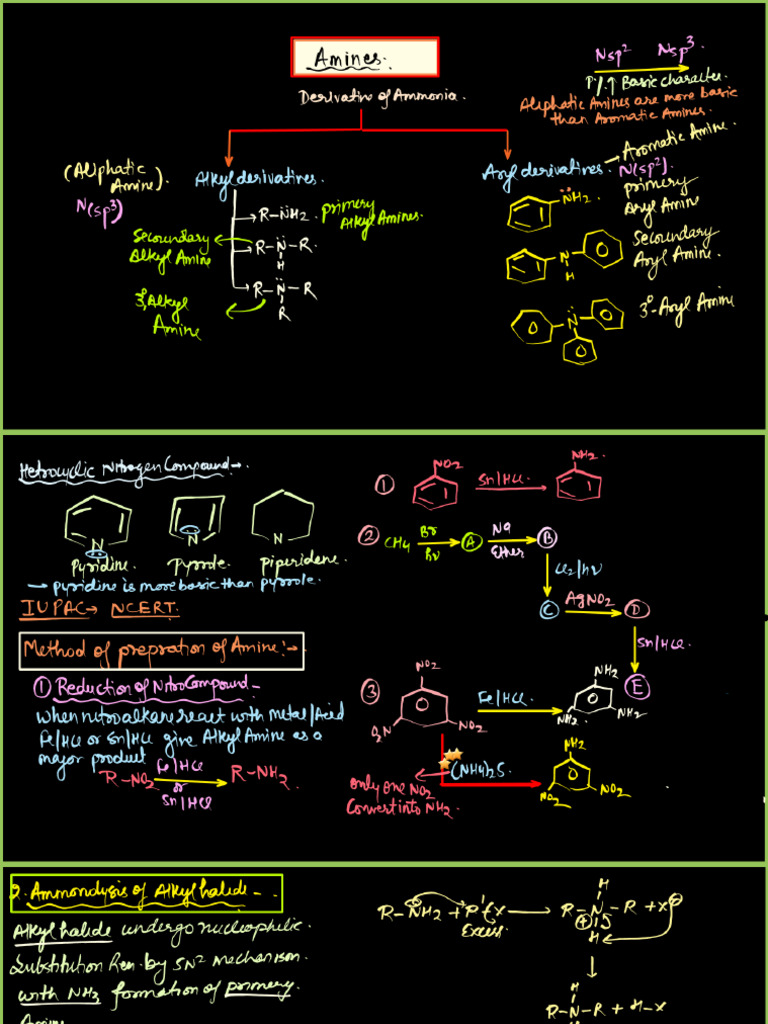 Amines.
Derivative of Ammonia.
Nsp² Nsp³.
P%↑ Basic character.
Aliphatic Amines are more basic
than Aromatic Amines.
(Aliphatic
Amine).
N(sp³)
Alkyl derivatives.
R-NH2. primery
Alkyl Amines.
Secoundary
Alkyl Amine
R-N-R.
H
3°, Alkyl
Amine
R-N-R
R
Aryl derivatives. → Aromatic Amine.
N(sp²).
NH2.
primery
Aryl Amine
N
H
Secoundary
Aryl Amine.
N
3°-Aryl Amine
Hetrocyclic Nitrogen Compound→.
N N N
Pyridine. Pyrrole. piperidene.
→ pyridine is more basic than pyrrole.
IUPAC→ NCERT.
Method of prepration of Amine:→.
① Reduction of Nitro Compound-
When nitroalkane react with Metal/Acid
Fe/HCl or Sn/HCl give Alkyl Amine as a
major product
R-NO2 Fe/HCl or Sn/HCl R-NH2.
① NO2 Sn/HCl NH2
② CH4 Br hν A Na Ether B
Cl2/hν
C AgNO2 D
Sn/HCl
E
③ NO2 O2N NO2 Fe/HCl. NH2 NH2 NH2
(NH4)2S. NH2 NO2 NO2
only one NO2
Convert into NH2.
2. Ammonolysis of Alkyl halide-.
Alkyl halide undergo nucleophilic.
Substitution Rxn. by SN² mechanism.
with NH3 formation of primery.
Amine
R-NH2 + R'-X
Excess.
H
R-N-R + X⊖
⊕
H
H
R-N-R + H-X